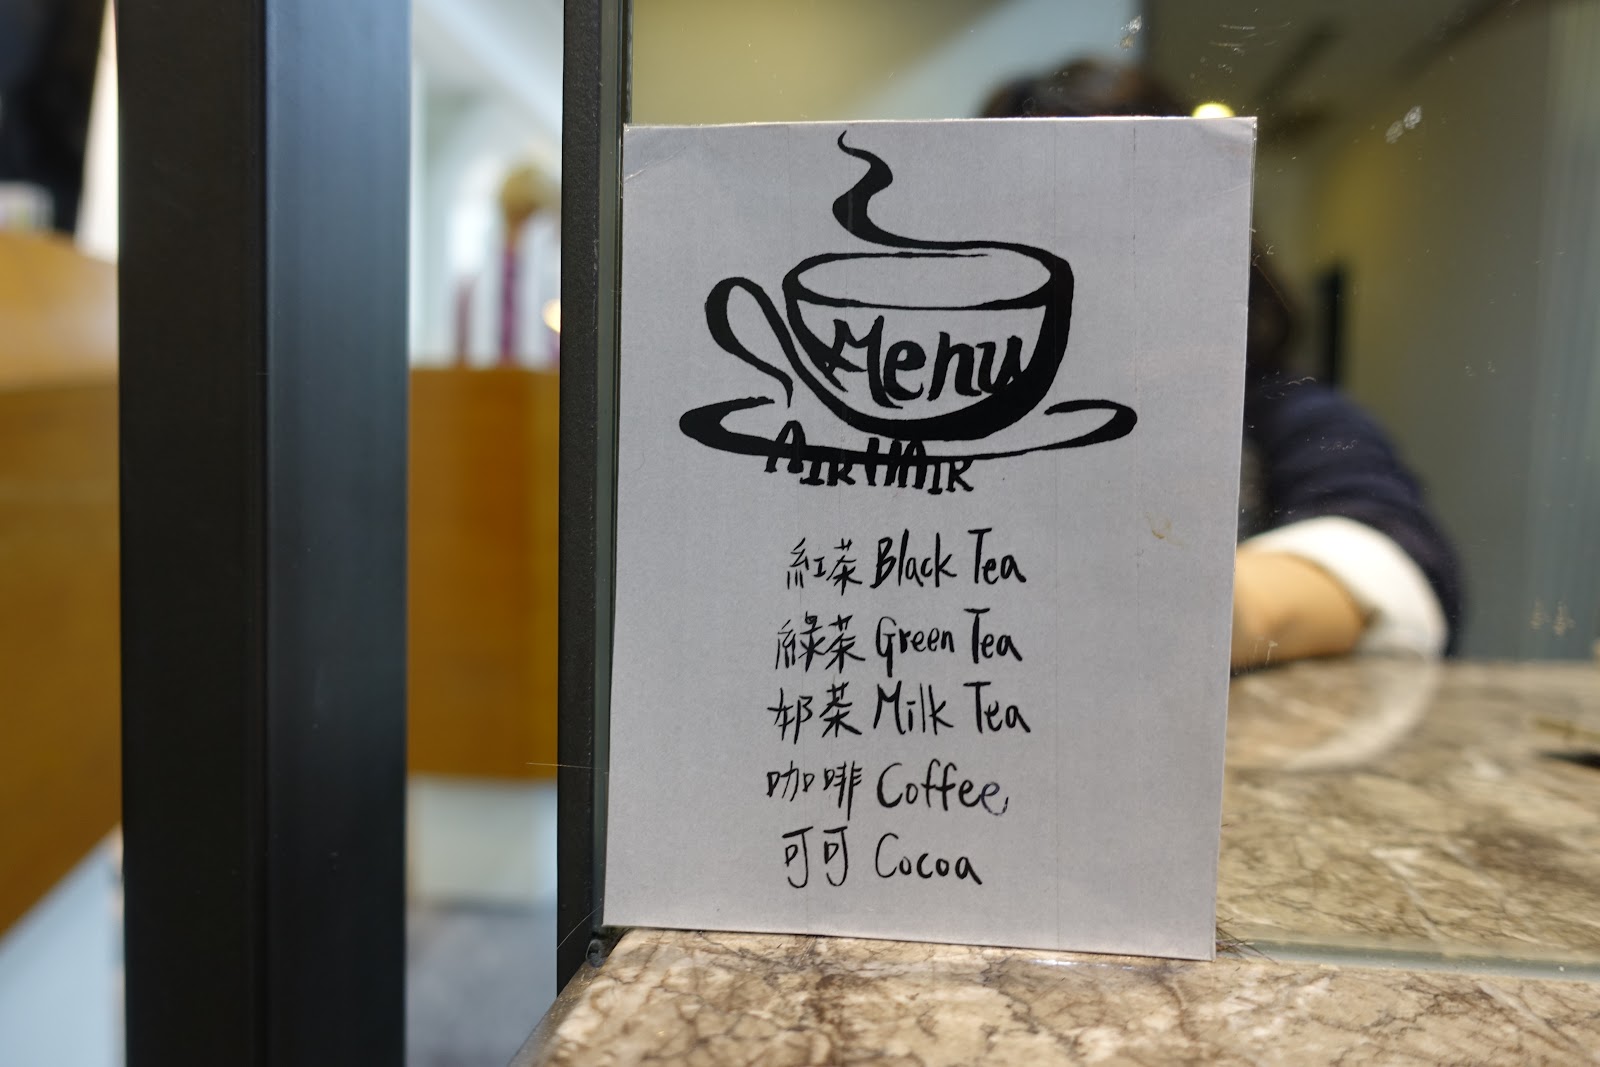 Menu
AIRHAIR
紅茶 Black Tea
綠茶 Green Tea
奶茶 Milk Tea
咖啡 Coffee
可可 Cocoa